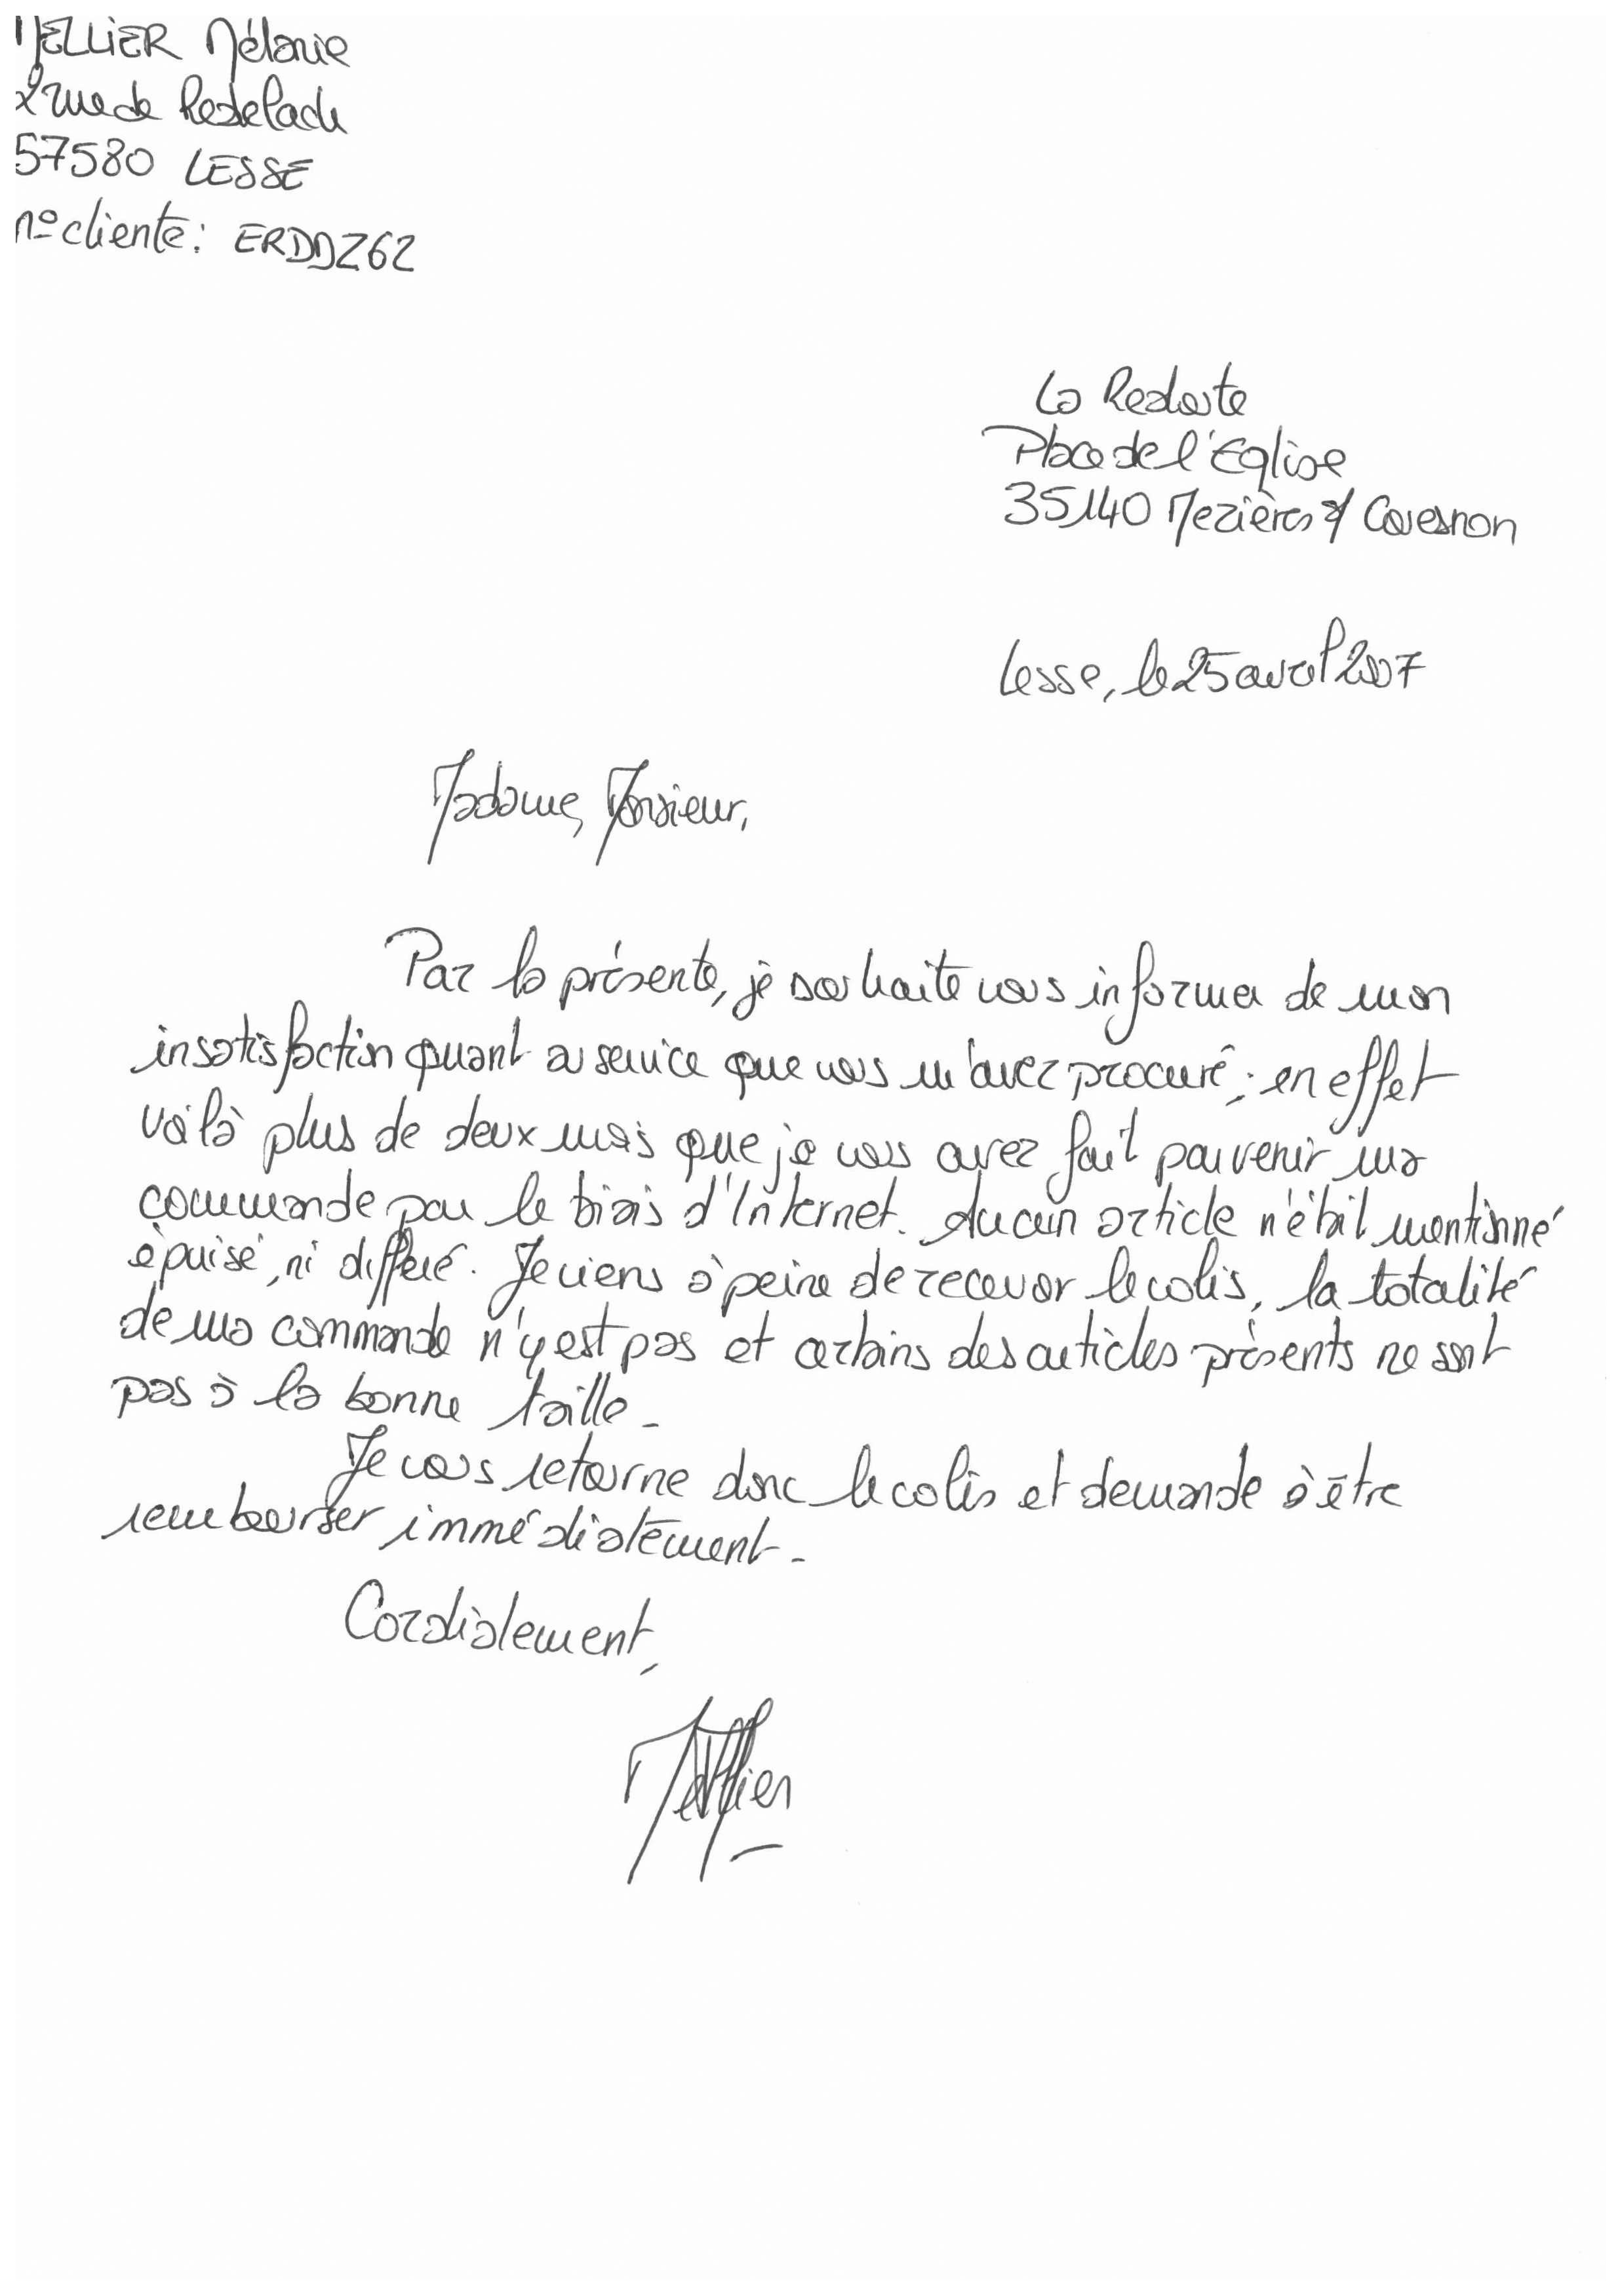 MELLIER Mélanie
2 rue de Redelach
57580 LESSE
n° cliente : ERDDZ62
La Redoute
Place de l'Eglise
35140 Mezières s/ Couesnon
Lesse, le 25 avril 2007
Madame, Monsieur,
Par la présente, je souhaite vous informer de mon
insatisfaction quant au service que vous m'avez procuré ; en effet
voilà plus de deux mois que je vous avez fait parvenir ma
commande par le biais d'Internet. Aucun article n'était mentionné
épuisé, ni différé. Je viens à peine de recevoir le colis, la totalité
de ma commande n'y est pas et certains des articles présents ne sont
pas à la bonne taille.
Je vous retourne donc le colis et demande à être
rembourser immédiatement.
Cordialement,
Mellier